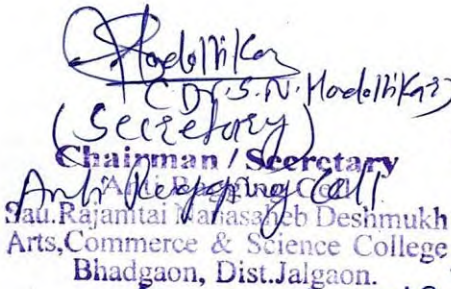 Hadollikar
(Dr. S. N. Hadollikar)
(Secretary)
Chairman / Secretary
Anti Ragging Cell
Anti Ragging Cell
Sau.Rajanitai Nanasaheb Deshmukh
Arts,Commerce & Science College
Bhadgaon, Dist.Jalgaon.